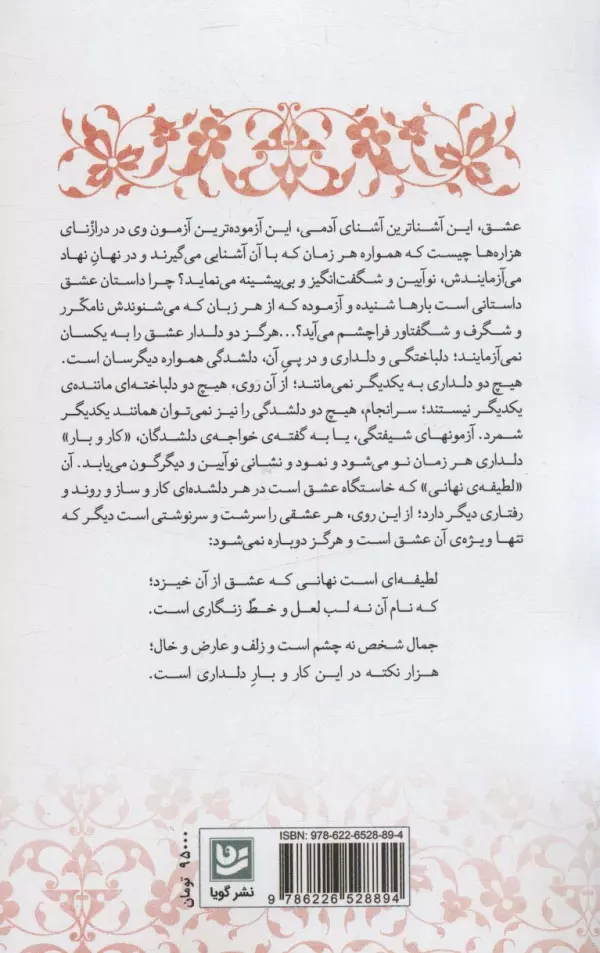 عشق، این آشناترین آشنای آدمی، این آزموده‌ترین آزمون وی در درازْنای
هزاره‌ها چیست که همواره هر زمان که با آن آشنایی می‌گیرند و در نهانِ نهاد
می‌آزمایندش، نوآیین و شگفت‌انگیز و بی‌پیشینه می‌نماید؟ چرا داستان عشق
داستانی است بارها شنیده و آزموده که از هر زبان که می‌شنوندش نامکّرر
و شگرف و شگفتاور فراچشم می‌آید؟...هرگز دو دلدار عشق را به یکسان
نمی‌آزمایند؛ دلباختگی و دلداری و در پیِ آن، دلشدگی همواره دیگرسان است.
هیچ دو دلداری به یکدیگر نمی‌مانند؛ از آن رَوی، هیچ دو دلباخته‌ای ماننده‌ی
یکدیگر نیستند؛ سرانجام، هیچ دو دلشدگی را نیز نمی‌توان همانند یکدیگر
شمرد. آزمونهای شیفتگی، یا به گفته‌ی خواجه‌ی دلشدگان، «کار و بار»
دلداری هر زمان نو می‌شود و نمود و نشانی نوآیین و دیگرگون می‌یابد. آن
«لطیفه‌ی نهانی» که خاستگاه عشق است در هر دلشده‌ای کار و ساز و روند و
رفتاری دیگر دارد؛ از این روی، هر عشقی را سرشت و سرنوشتی است دیگر که
تنها ویژه‌ی آن عشق است و هرگز دوباره نمی‌شود:
لطیفه‌ای است نهانی که عشق از آن خیزد؛
که نام آن نه لب لعل و خطّ زنگاری است.
جمال شخص نه چشم است و زلف و عارض و خال؛
هزار نکته در این کار و بارِ دلداری است.
ISBN: 978-622-6528-89-4
9 786226 528894
نشر گویا
۹۵۰۰۰ تومان